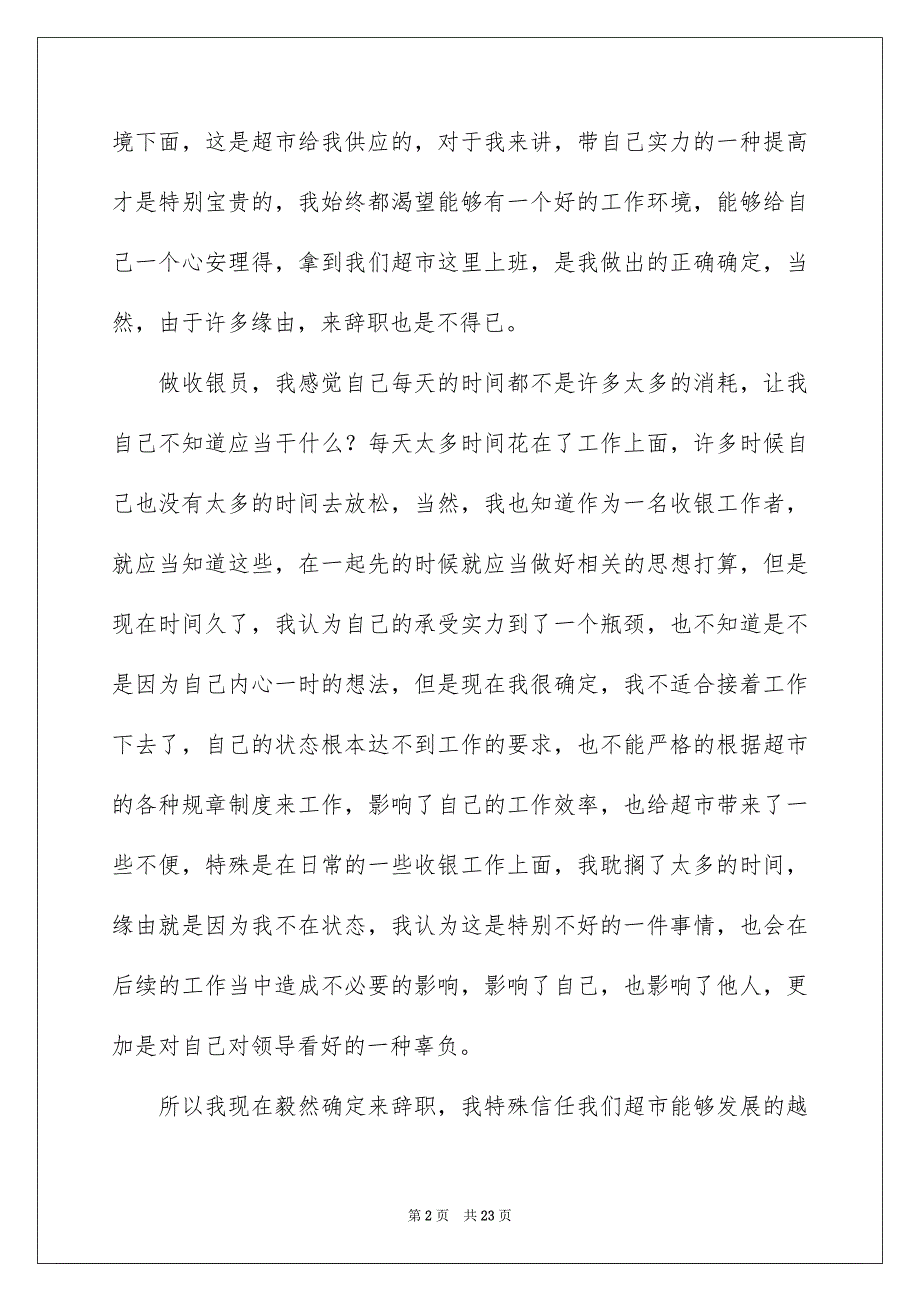 境下面，这是超市给我供应的，对于我来讲，带自己实力的一种提高
才是特别宝贵的，我始终都渴望能够有一个好的工作环境，能够给自
己一个心安理得，拿到我们超市这里上班，是我做出的正确确定，当
然，由于许多缘由，来辞职也是不得已。
做收银员，我感觉自己每天的时间都不是许多太多的消耗，让我
自己不知道应当干什么？每天太多时间花在了工作上面，许多时候自
己也没有太多的时间去放松，当然，我也知道作为一名收银工作者，
就应当知道这些，在一起先的时候就应当做好相关的思想打算，但是
现在时间久了，我认为自己的承受实力到了一个瓶颈，也不知道是不
是因为自己内心一时的想法，但是现在我很确定，我不适合接着工作
下去了，自己的状态根本达不到工作的要求，也不能严格的根据超市
的各种规章制度来工作，影响了自己的工作效率，也给超市带来了一
些不便，特殊是在日常的一些收银工作上面，我耽搁了太多的时间，
缘由就是因为我不在状态，我认为这是特别不好的一件事情，也会在
后续的工作当中造成不必要的影响，影响了自己，也影响了他人，更
加是对自己对领导看好的一种辜负。
所以我现在毅然确定来辞职，我特殊信任我们超市能够发展的越
第 2 页 共 23 页